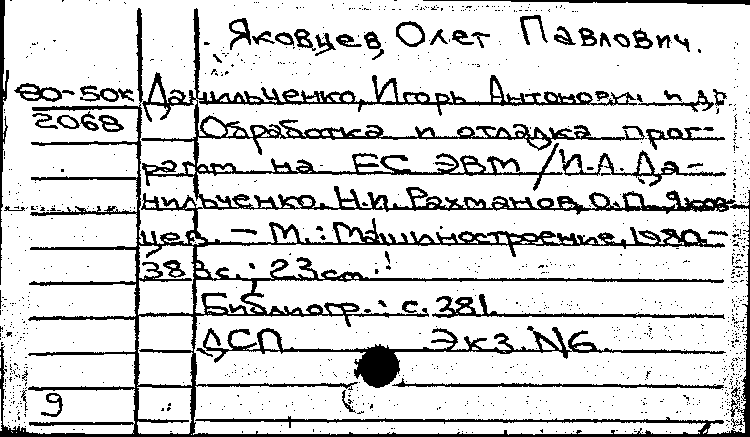 Яковцев, Олег Павлович.
80-50к Данильченко, Игорь Антонович и др
2068 Обработка и отладка прог-
рамм на ЕС ЭВМ / И.А. Да-
нильченко, Н.И. Рахманов, О.П. Яков-
цев. — М.: Машиностроение, 1980.-
383 с.; 23 см.
Библиогр.: с. 381.
ДСП Экз. N6
9